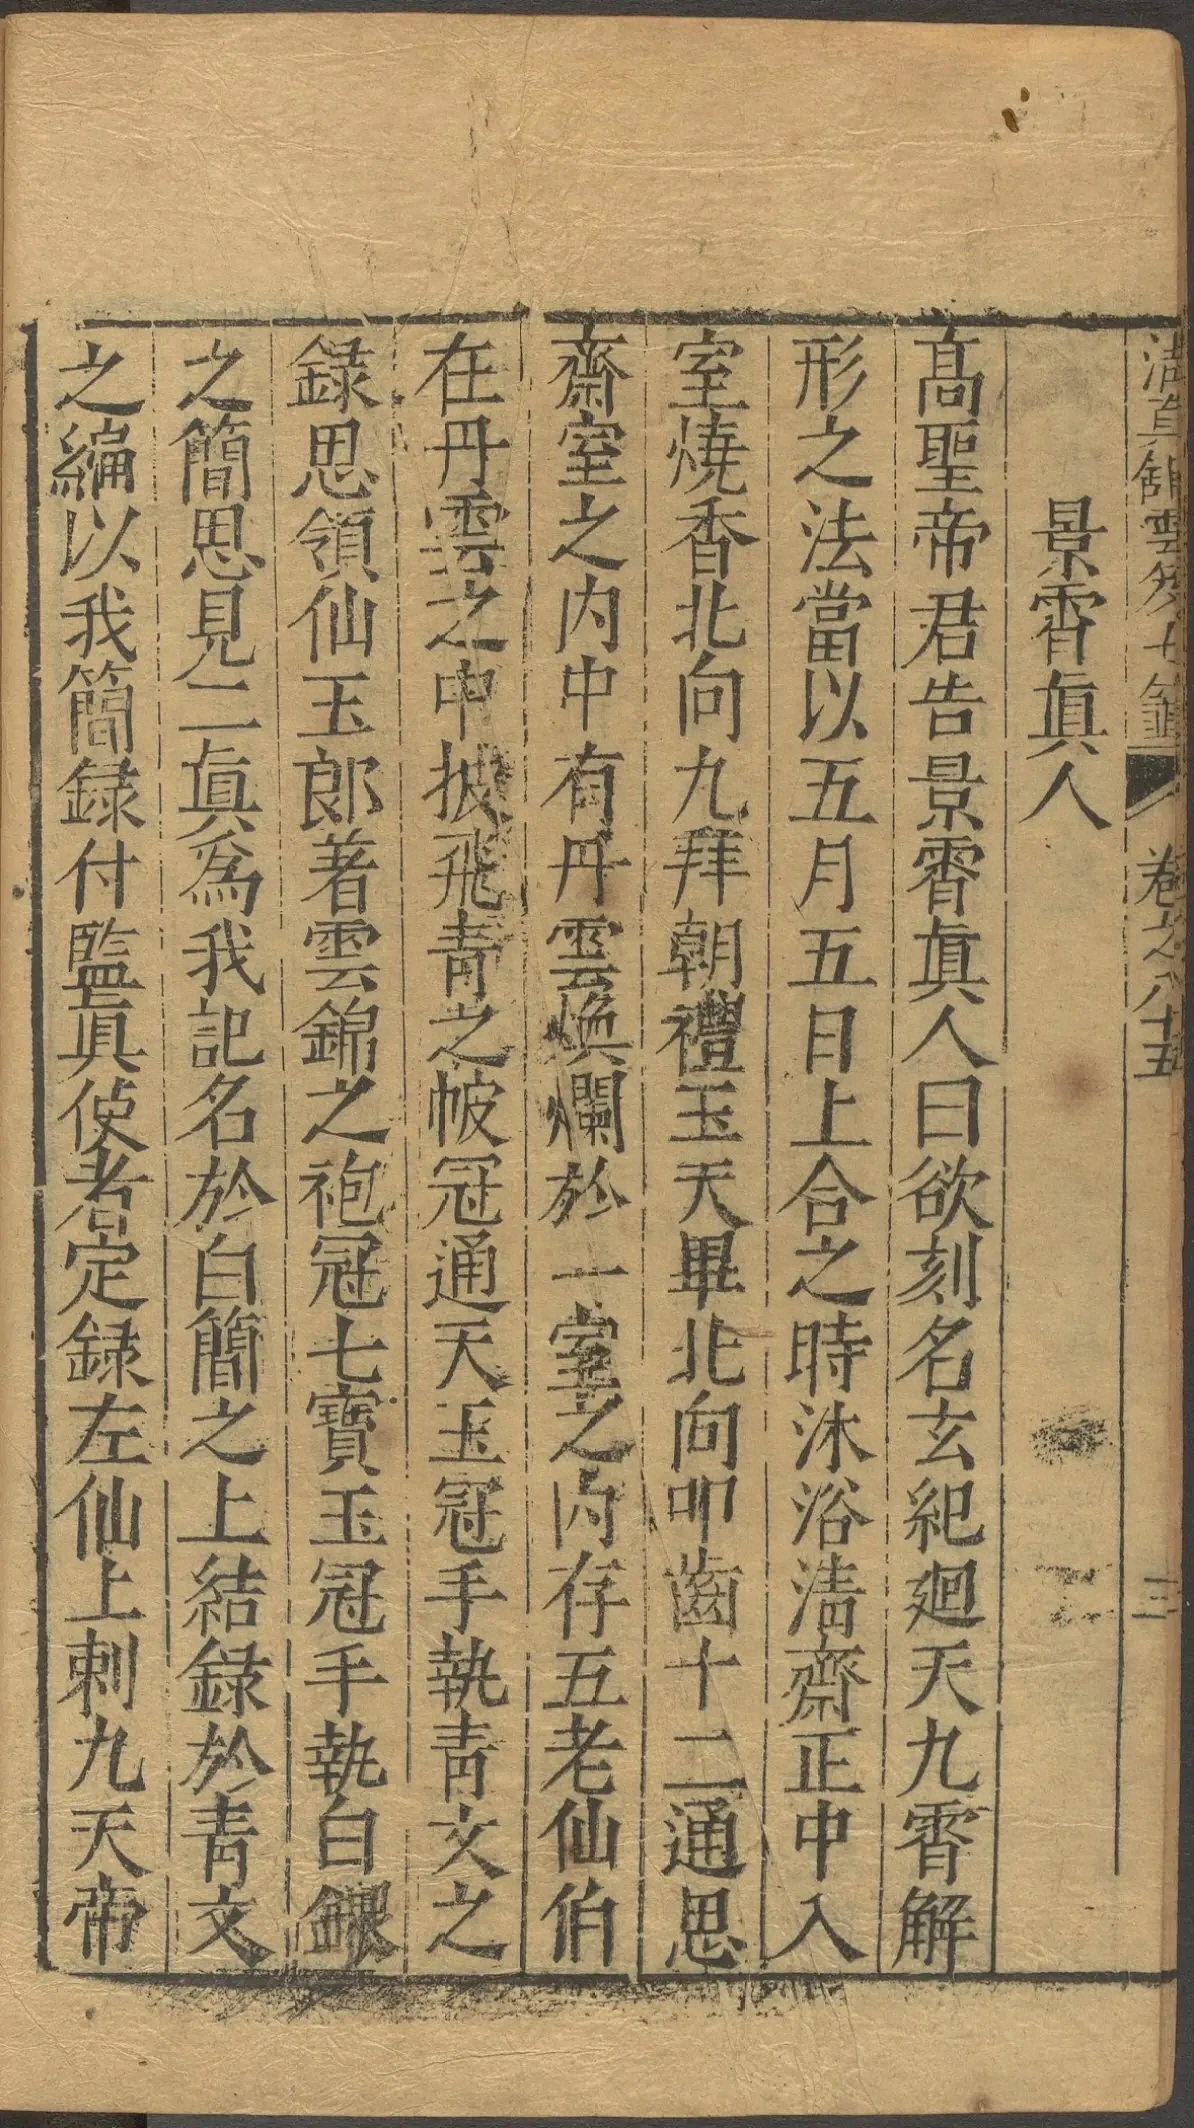 清真館雲笈七籤 卷之八十五 三
景霄眞人
高聖帝君告景霄眞人曰欲刻名玄紀廻天九霄解
形之法當以五月五日上合之時沐浴淸齋正中入
室燒香北向九拜朝禮玉天畢北向叩齒十二通思
齋室之內中有丹雲煥爛於一室之內存五老仙伯
在丹雲之中披飛靑之帔冠通天玉冠手執靑文之
錄思領仙玉郎著雲錦之袍冠七寶玉冠手執白銀
之簡思見二眞爲我記名於白簡之上結錄於靑文
之編以我簡録付監眞使者定録左仙上刺九天帝